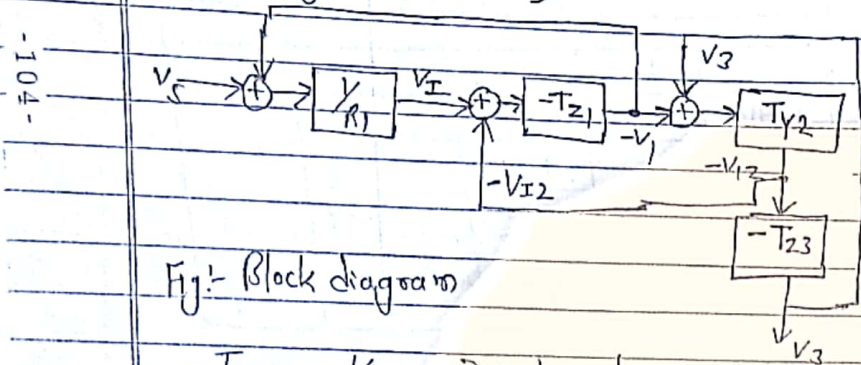 -104-
V3
Vs
+
1/R1
VI
+
-Tz1
-V1
+
Ty2
-VI2
-VI2
-Tz3
Fig:- Block diagram
V3